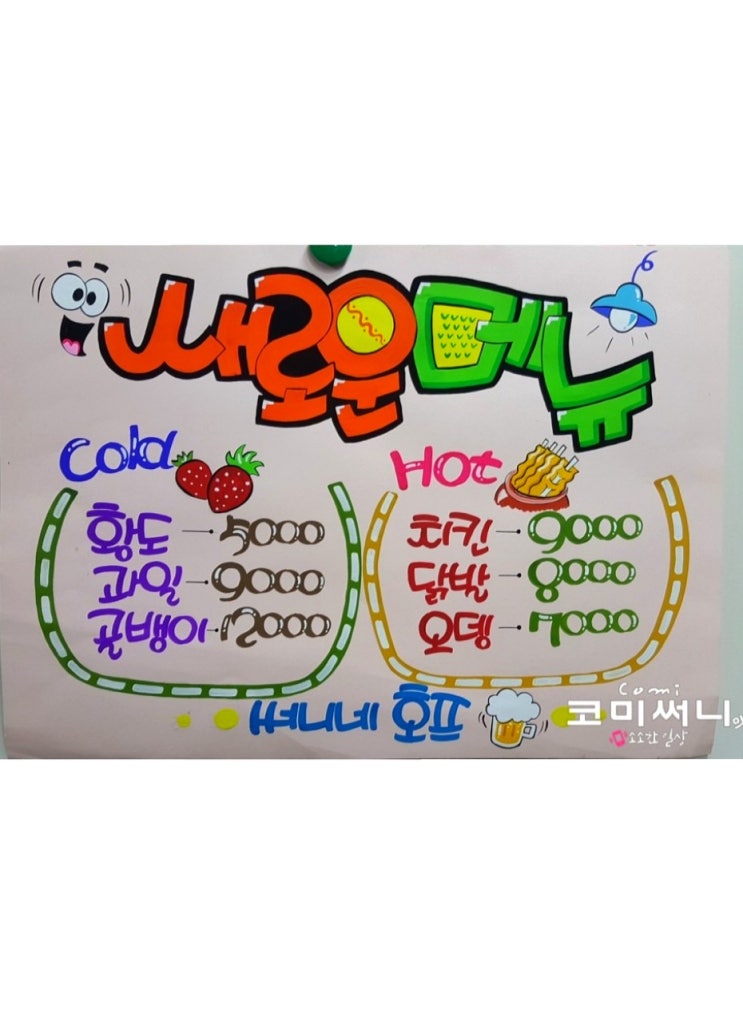 새로운메뉴
Cold
황도 5000
과일 9000
골뱅이 12000
Hot
치킨 9000
닭발 8000
오뎅 7000
써니네 호프
Comi
코미써니의
소소한 일상